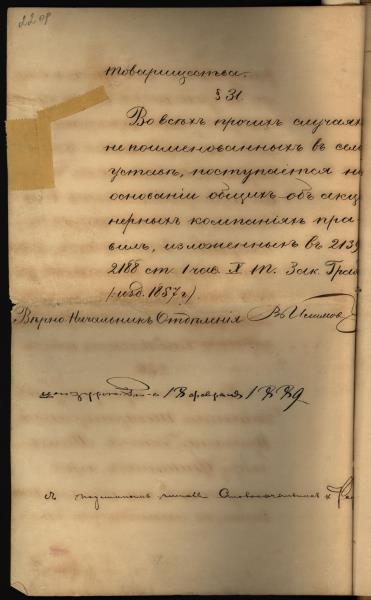 2209
товарищества.
§ 31.
Во всѣхъ прочихъ случаяхъ
не поименованныхъ въ сем
уставѣ, поступается на
основаніи общихъ объ акц
нерныхъ компаніяхъ пра
вилъ, изложенныхъ въ 2139
2188 ст. 1 час. X т. Зак. Граж
(изд. 1857 г.)
Вѣрно: Начальникъ Отдѣленія
18 февраля 1889
съ подлиннымъ